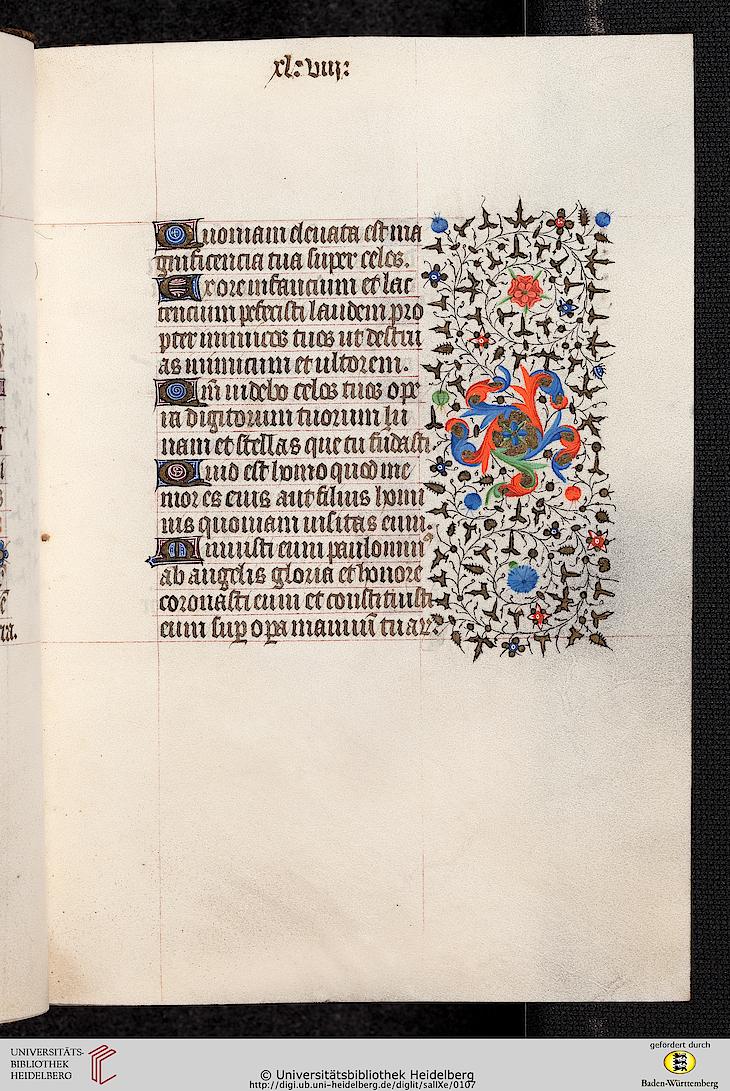 xl: viij:
Quoniam eleuata est ma
gnificencia tua super celos.
Ex ore infancium et lac
tencium perfecisti laudem pro
pter inimicos tuos ut destru
as inimicum et ultorem.
Qm̄ uidebo celos tuos ope
ra digitorum tuorum lu
nam et stellas que tu fūdasti
Quid est homo quod me
mor es eius aut filius homi
nis quoniam uisitas eum.
Minuisti eum paulomin9
ab angelis gloria et honore
coronasti eum et constituisti
eum sup opa manuū tuar
UNIVERSITÄTS-
BIBLIOTHEK
HEIDELBERG
© Universitätsbibliothek Heidelberg
http://digi.ub.uni-heidelberg.de/diglit/salIXe/0107
gefördert durch
Baden-Württemberg